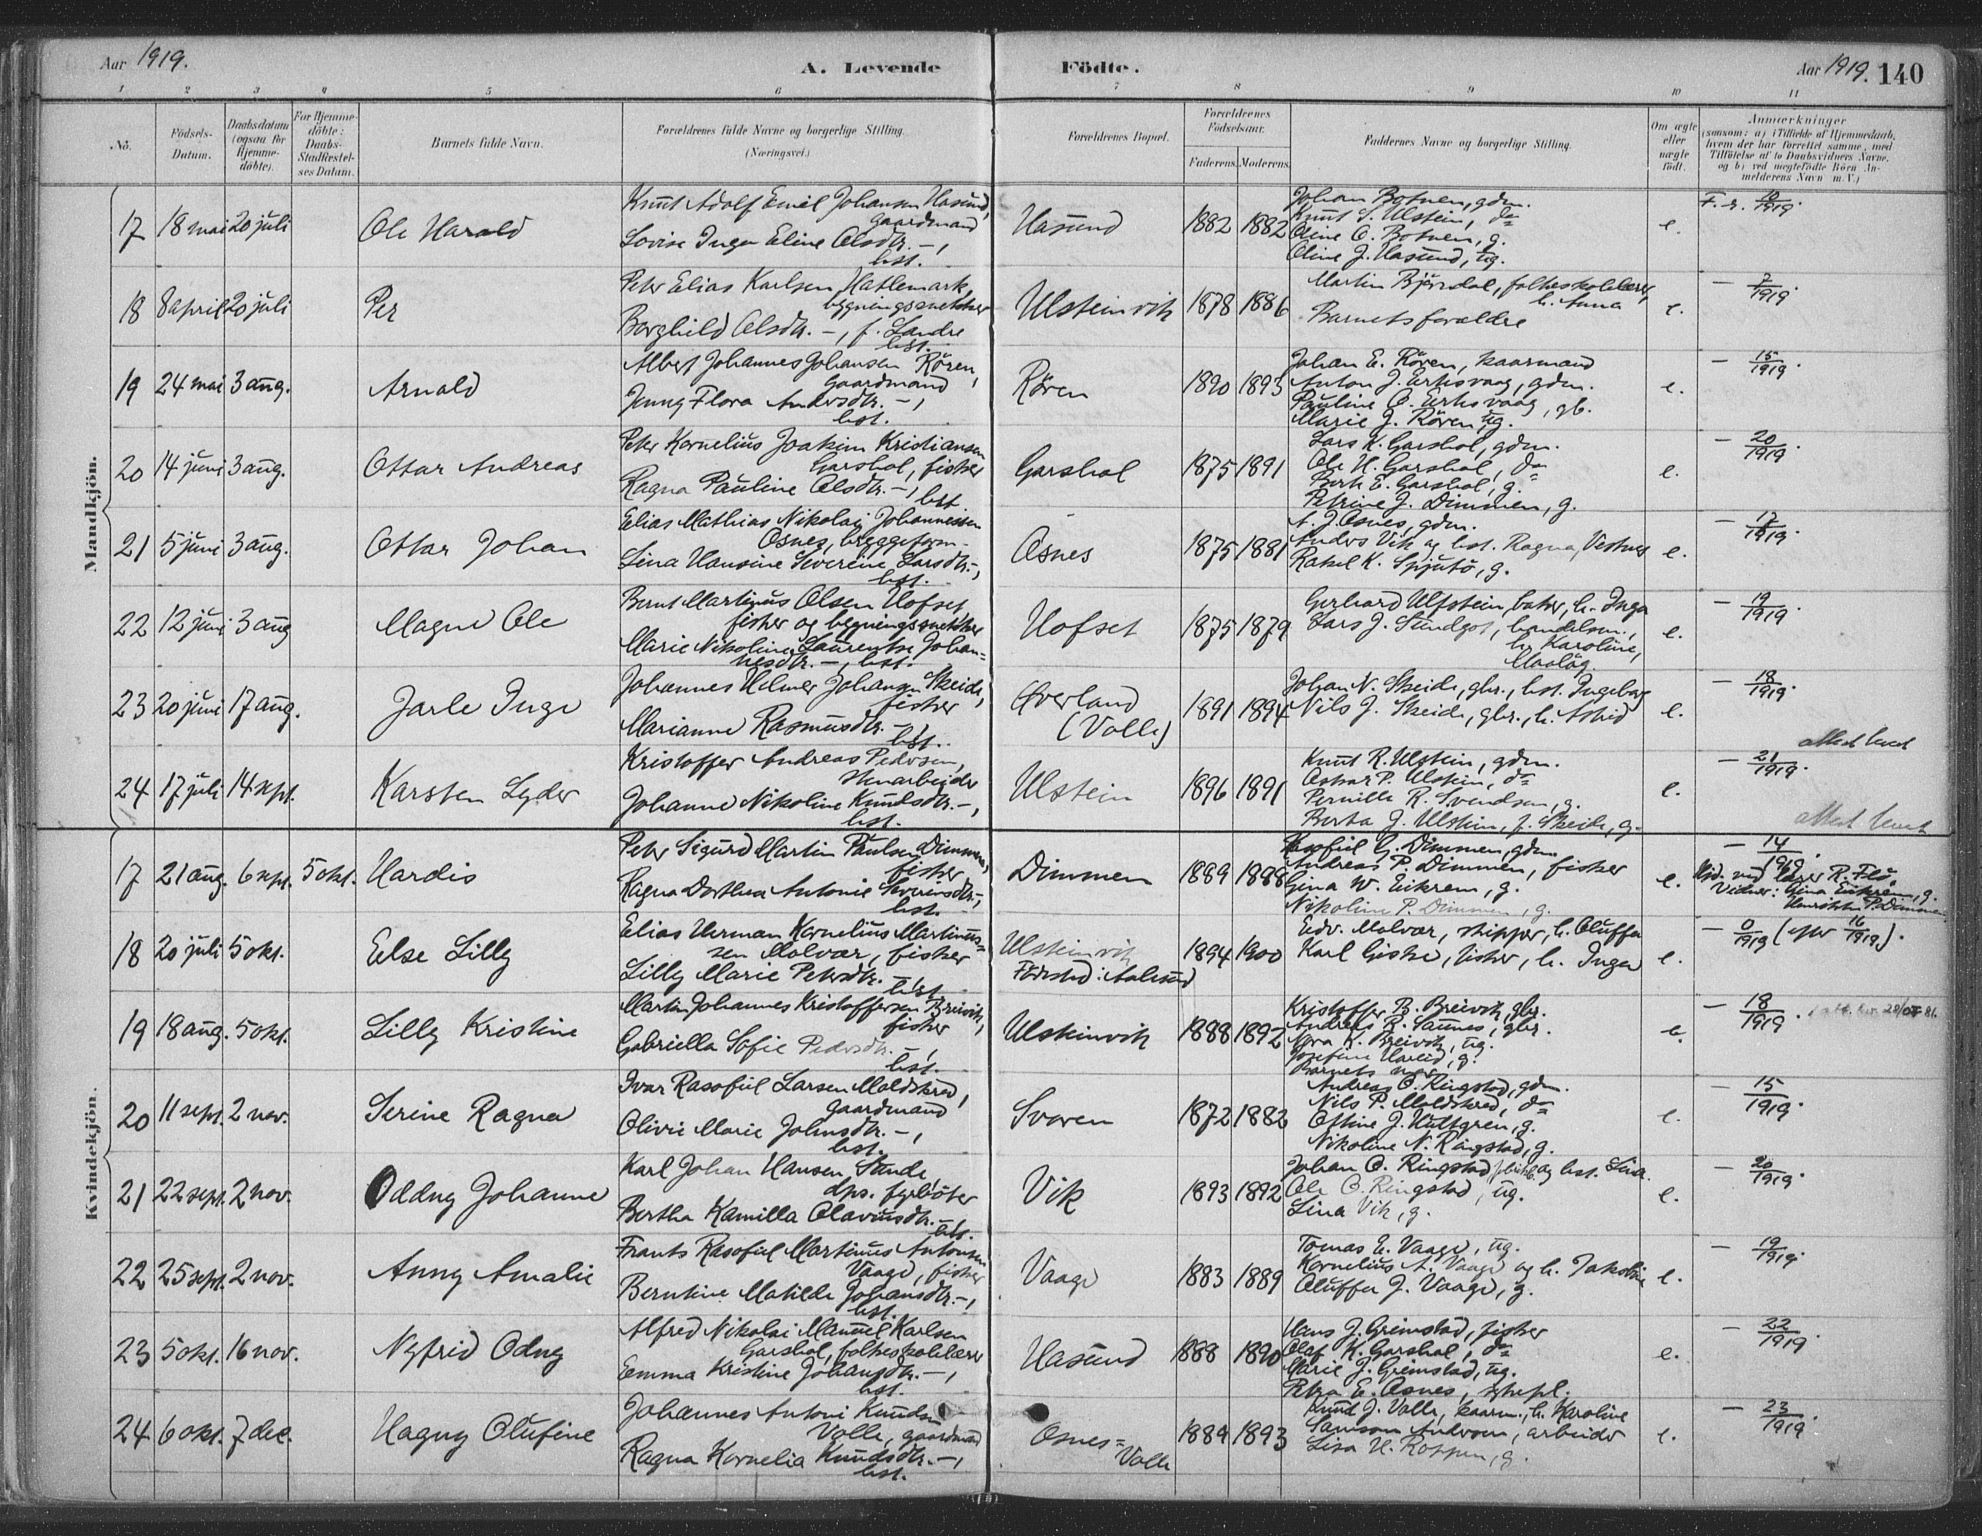 Aar 1919.
A. Levende Födte.
Aar 1919. 140
1 2 3 4 5 6 7 8 9 10 11
No.
Födsels-Datum.
Daabsdatum (ogsaa for Hjemme-döbte).
For Hjemme-döbte: Daabs-Stadfæstel-ses Datum.
Barnets fulde Navn.
Forældrenes fulde Navne og borgerlige Stilling. (Næringsvei.)
Forældrenes Bopæl.
Forældrenes Födselsaar.
Faderens. Moderens.
Faddernes Navne og borgerlige Stilling.
Om ægte eller uægte födt.
Anmærkninger
(saasom: a) i Tilfælde af Hjemmedaab,
hvem der har forrettet samme, med
Tilföielse af to Daabsvidners Navne,
og b) ved uægtefödte Börn An-
melderens Navn m. V.)
Mandkjön.
17 18 mai 20 juli Ole Harald
Knut Adolf Emil Johansen Hasund,
gaardmand
Lovise Inga Eline Olsdtr. —,
hst.
Hasund 1882 1882
Johan Botnen, gdm.
Knut S. Ulstein, do
Oline O. Botnen, g.
Oline J. Hasund, ug.
e.
18 8 april 20 juli Per
Peter Elias Karlsen Hatlemark,
bygningssnekker
Borghild Olsdtr. —, f. Landre
hst.
Ulsteinvik 1878 1886
Martin Bjørndal, folkeskolelærer,
h. Anna
Barnets forældre
e. — 7/1919.
19 24 mai 3 aug. Arnold
Albert Johannes Johansen Røren,
gaardmand
Jenny Flora Andersdtr. —,
hst.
Røren 1890 1893
Johan E. Røren, kaarmand
Anton J. Eiksvaag, gdm.
Pauline O. Eiksvaag, gb.
Marie J. Røren, ug.
e. — 15/1919.
20 14 juni 3 aug. Ottar Andreas
Peter Kornelius Joakim Kristiansen
Garshol, fisker
Ragna Pauline Olsdtr. —,
hst.
Garshol 1875 1891
Lars K. Garshol, gdm.
Ole H. Garshol, do
Berte E. Garshol, g.
Petrine J. Dimmen, g.
e. — 20/1919.
21 5 juni 3 aug. Ottar Johan
Elias Mathias Nikolai Johannessen
Osnes, byggeform.
Lina Hansine Severine Larsdtr. —,
hst.
Osnes 1875 1881
A. J. Osnes, gdm.
Anders Vik og hst. Ragna, Vestnes
Rakel K. Spjutø, g.
e. — 17/1919.
22 12 juni 3 aug Magne Ole
Bernt Martinus Olsen Hofset,
fisker og bygningssnekker
Marie Nikoline Laurentse Johan-
nesdtr. —, hst.
Hofset 1875 1879
Gerhard Ulfstein, baker, h. Inga
Lars J. Sundgot, handelsm.,
h. Karoline,
e. — 19/1919.
23 20 juni 17 aug. Jarle Inge
Johannes Helmer Johansen Skeide,
fisker
Marianne Rasmusdtr. —,
hst.
Øverland
(Volle) 1891 1894
Johan N. Skeide, gbr., hst. Ingeborg
Nils J. Skeide, gbr., h. Astrid
e. — 18/1919.
attest levert
24 17 juli 14 sept. Karsten Lyder
Kristoffer Andreas Pedersen,
stenarbeider
Johanne Nikoline Knudsdtr. —,
hst.
Ulstein 1896 1891
Knut R. Ulstein, gdm.
Oskar P. Ulstein, do
Pernille R. Svendsen, g.
Berta J. Ulstein, f. Skeide, g.
e. — 21/1919.
attest levert
Kvindekjön.
17 21 aug. 6 sept. 5 okt. Hardis
Peter Sigurd Martin Paulsen Dimmen,
fisker
Ragna Dorthea Antonie Severinsdtr. —,
hst.
Dimmen 1889 1888
Rasofiel G. Dimmen, gdm
Andreas P. Dimmen, fisker
Gina W. Eikrem, g.
Nikoline P. Dimmen, g.
e. — 14/1919.
Hjd. ved lærer R. Flø.
Vidner: Gina Eikrem, g.
P. Dimmen
18 20 juli 5 okt. Else Lilly
Elias Herman Kornelius Martinus-
sen Molvær, fisker
Lilly Marie Petersdtr. —,
hst.
Ulsteinvik
Fødested: Aalesund
1894 1900
Edv. Molvær, skipper, h. Oluffa
Karl Giske, fisker, h. Inga
e. — 0/1919 (efter 16/1919).
19 18 aug. 5 okt. Lilly Kristine
Martin Johannes Kristoffersen Breivik,
fisker
Gabriella Sofie Pedersdtr. —,
hst.
Ulsteinvik 1888 1892
Kristoffer B. Breivik, gbr.
Andreas R. Saunes, gbr.
Nora K. Breivik, ug.
Josefine Hareid, g.
Barnets mor
e. — 18/1919.
20 11 sept. 2 nov. Serine Ragna
Ivar Rasofiel Larsen Moldskred,
gaardmand
Olivie Marie Johnsdtr. —,
hst.
Svoren 1872 1882
Andreas O. Ringstad, gdm.
Nils P. Moldskred, do
Oftine J. Hultgren, g.
Nikoline N. Ringstad, g.
e. — 15/1919.
21 22 sept. 2 nov. Oddny Johanne
Karl Johan Hansen Sande,
dps. fyrbøter
Bertha Kamilla Olavusdtr. —,
hst.
Vik 1893 1892
Johan O. Ringstad, og hst. Lina
Ole O. Ringstad, ug.
Lina Vik, g.
e. — 20/1919.
22 25 sept. 2 nov. Anny Amalie
Frants Rasofiel Martinus Antonsen
Vaage, fisker
Berntine Matilde Johansdtr. —,
hst.
Vaage 1883 1889
Tomas E. Vaage, ug.
Kornelius A. Vaage og h. Jakobine
Oluffa J. Vaage, g.
e. — 19/1919.
23 5 okt. 16 nov. Nyfrid Odny
Alfred Nikolai Manuel Karlsen
Garshol, folkeskolelærer
Emma Kristine Johansdtr. —,
hst.
Hasund 1888 1890
Hans J. Grimstad, fisker
Olaf K. Garshol, do
Marie J. Grimstad, ug.
Petra E. Osnes, sykepl.
e. — 22/1919.
24 6 okt. 7 dec. Hagny Olufine
Johannes Antoni Knudsen
Volle, gaardmand
Ragna Kornelia Knudsdtr. —,
hst.
Osnes-
Volle
1889 1893
Knud J. Volle, kaarm., h. Karoline
Samson Andersen, arbeider
Lisa H. Roppen, g.
e. — 23/1919.